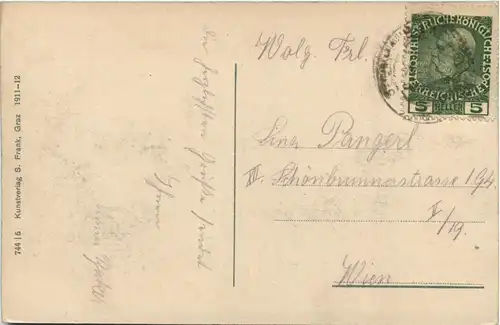 74416 Kunstverlag S. Frank, Graz 1911-12
die herzlichsten Grüße sendet
Ihnen
Wolg. Frl.
Lina Pangerl
III. Schönbrunnastrasse 194
V/19.
Wien
KAISERLICHE KÖNIGLICHE
ÖSTERREICHISCHE POST
5 HELLER 5